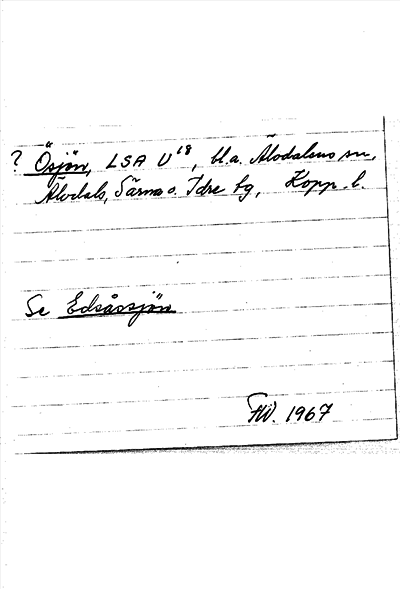 ? Ösjön, LSA U¹⁸, bl.a. Älvdalens sn,
Älvdals, Särna o. Idre tg, Kopp. l.
Se Edsåssjön
HW. 1967